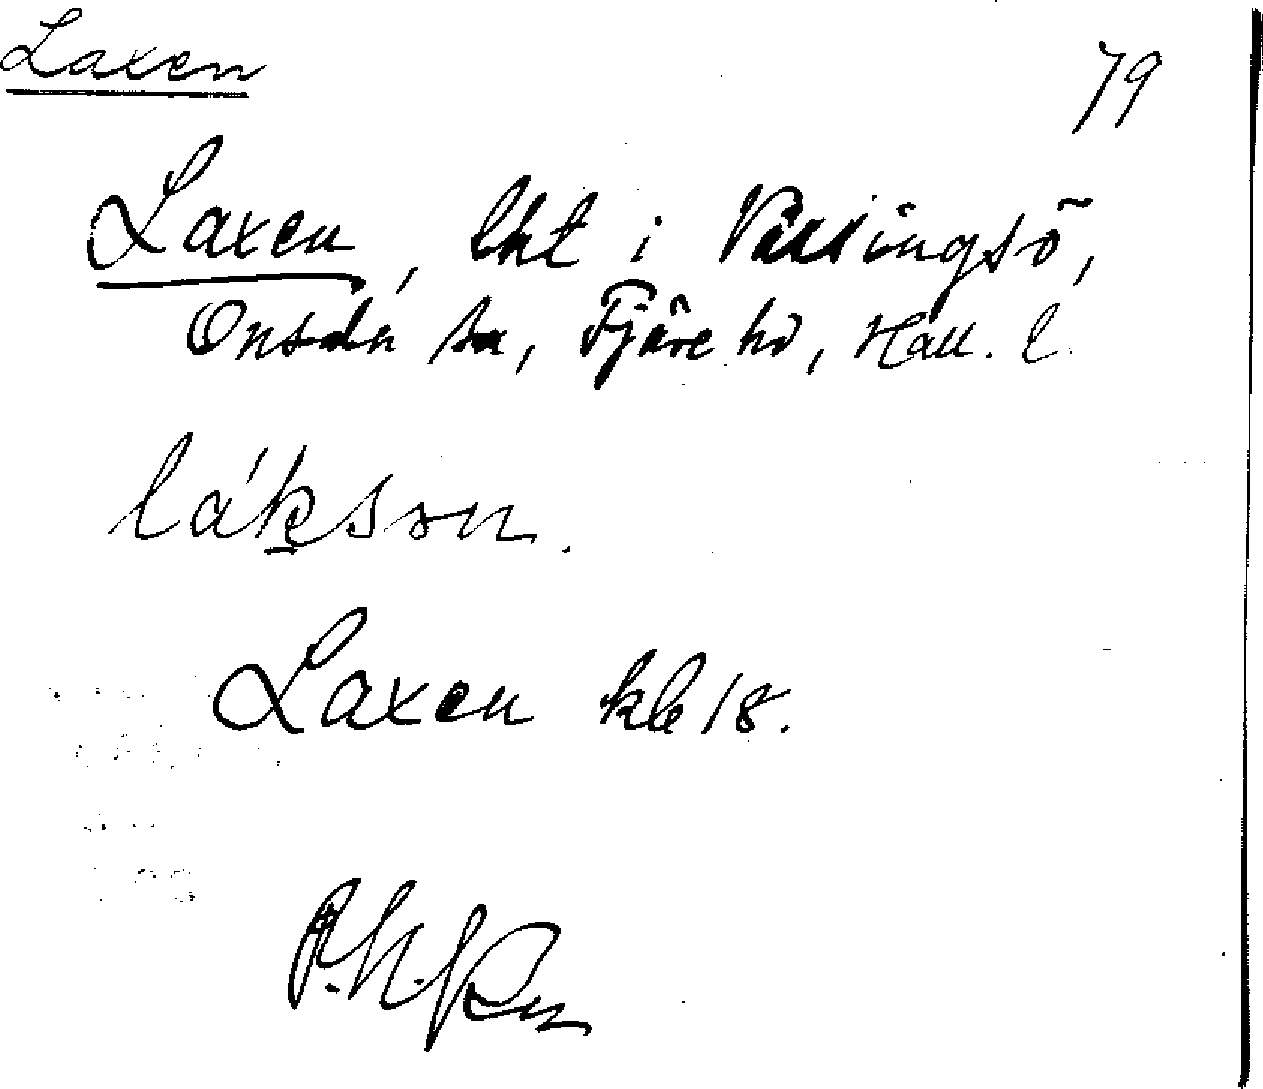 Laxen
79
Laxen, lht i Vallingsö,
Onsala sn, Fjäre hd, Hall. l.
láksǝn.
Laxen kb 18.